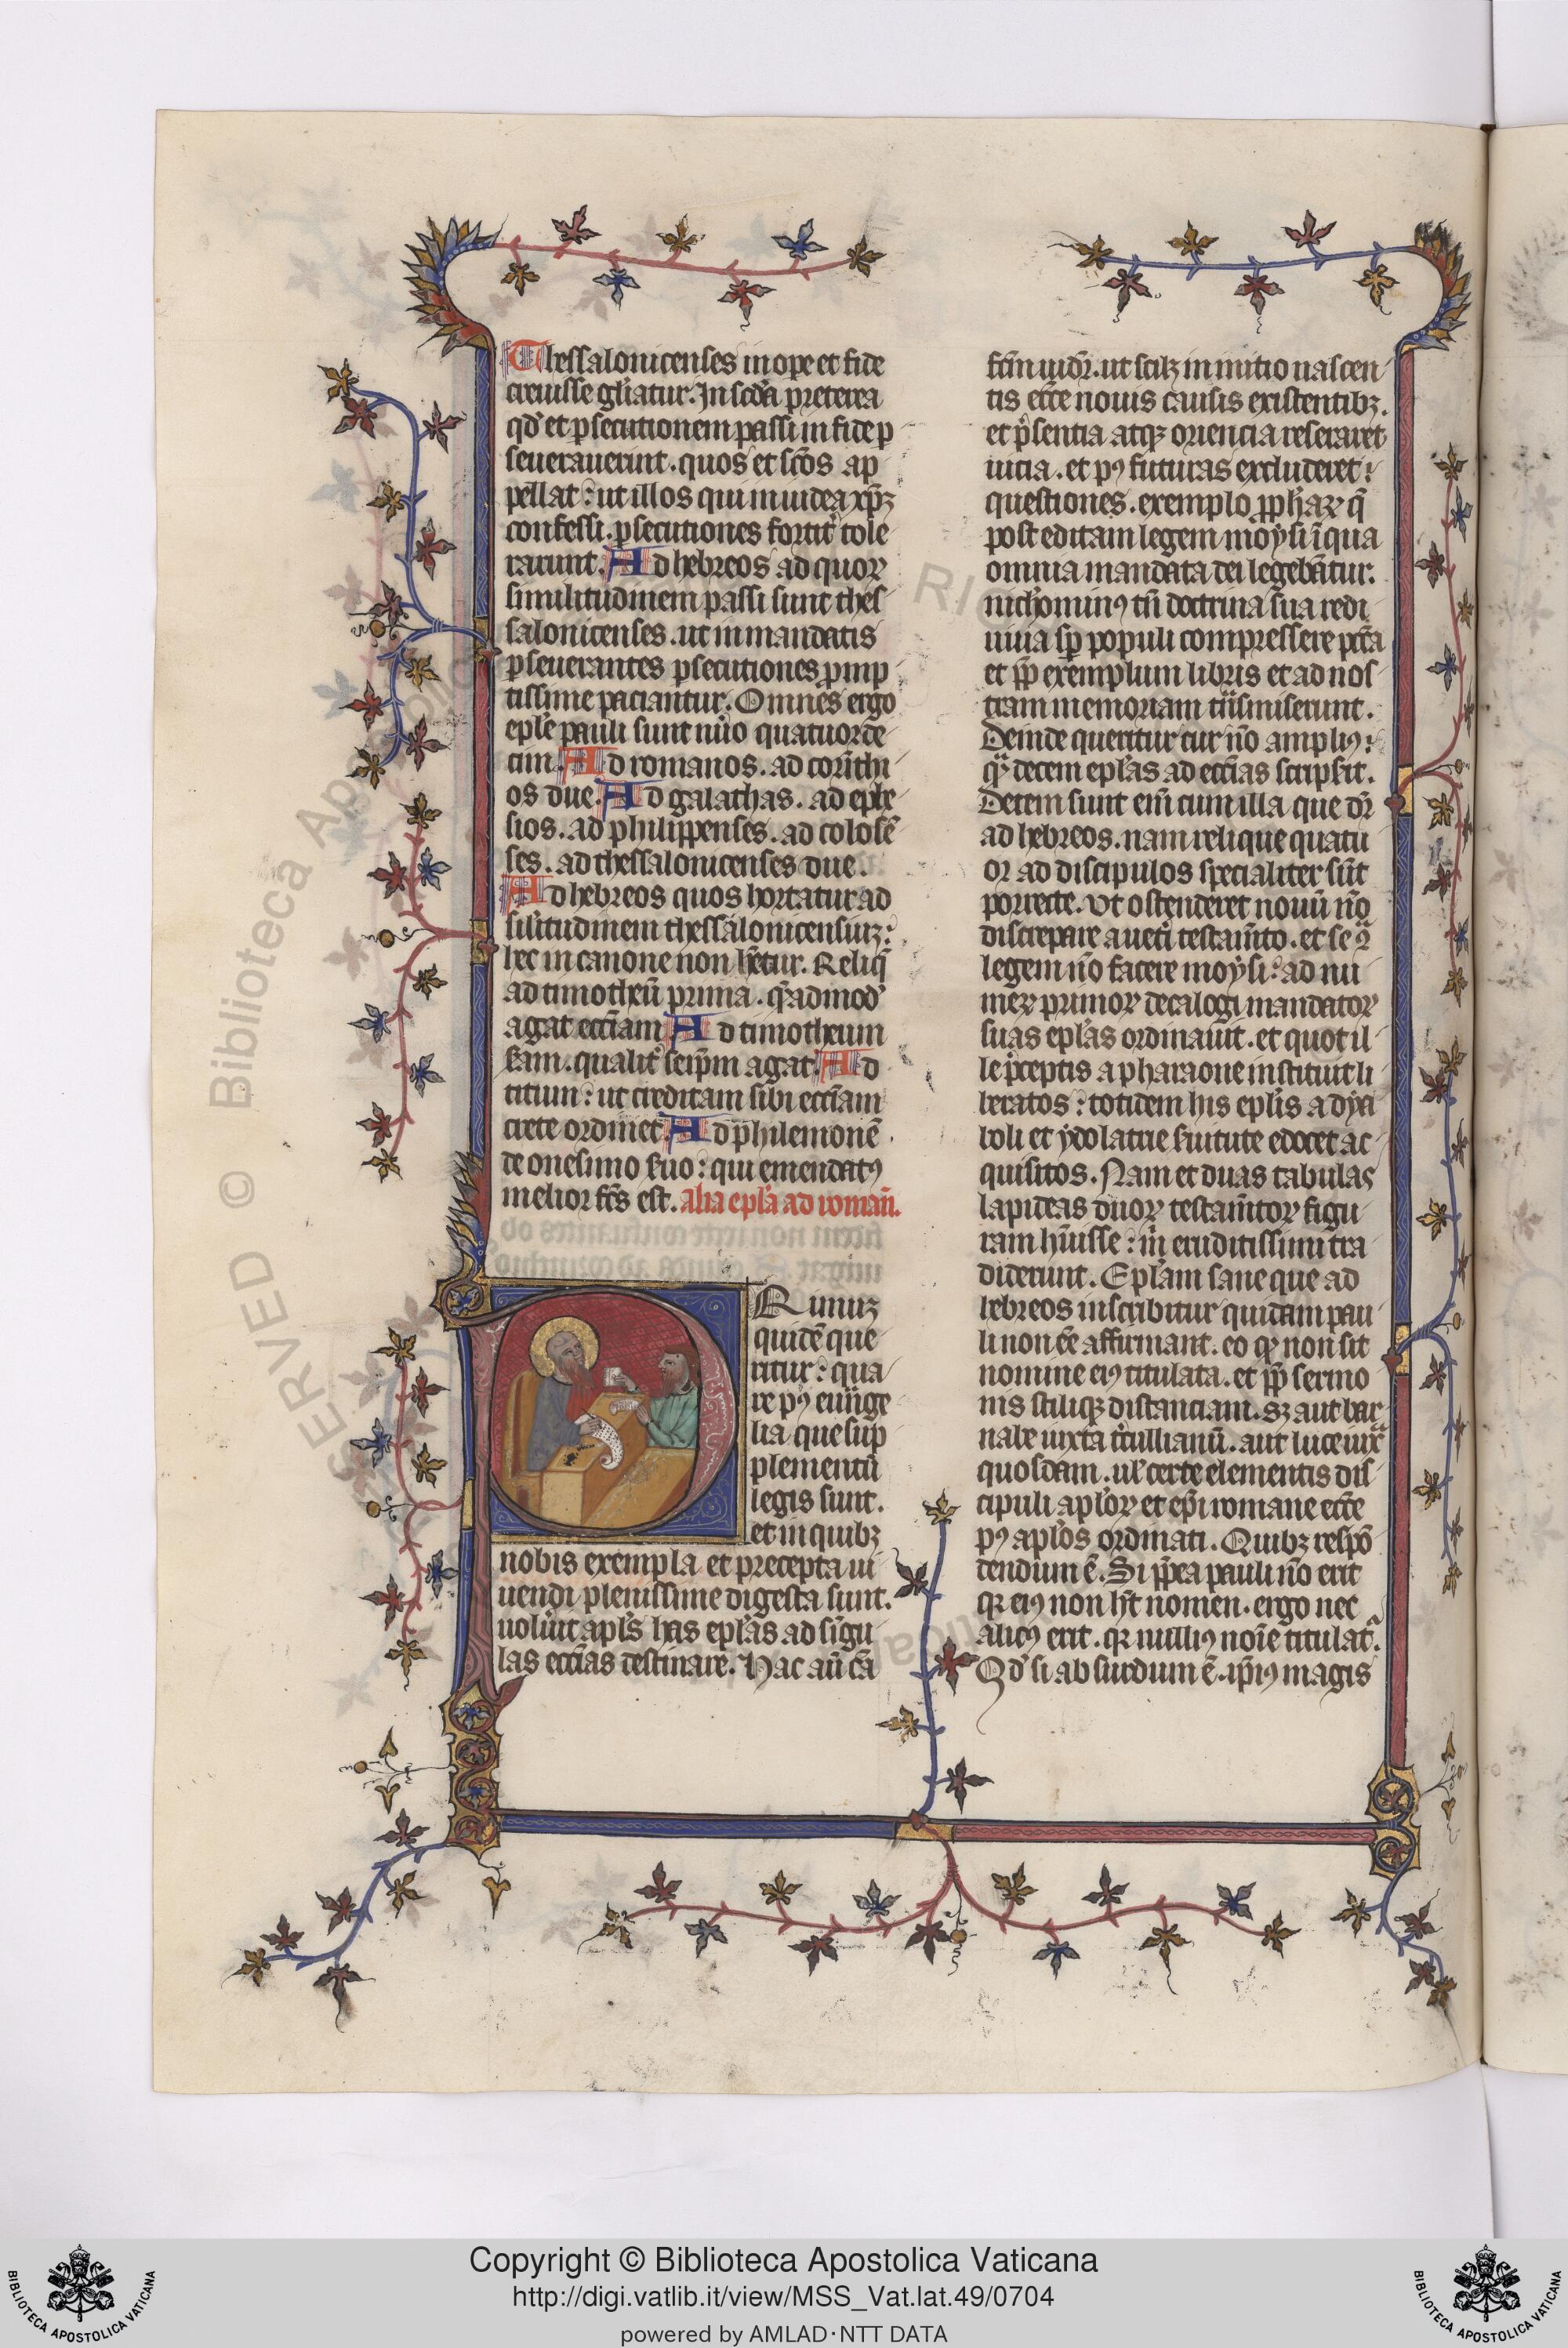 Thessalonicenses in ope et fide
creuisse gl̄iatur. In scd̄a preterea
qd̕ et ꝑsecutionem passi in fide ꝑ
seuerauerint. quos et sc̄os ap
pellat: ut illos qui in iudea xp̄ꝫ
confessi. ꝑsecutiones fortit̕ tole
rarunt. Ad hebreos ad quoꝝ
similitudinem passi sunt thes
salonicenses. ut in mandatis
ꝑseuerantes ꝑsecutiones ꝓmp
tissime paciantur. Omnes ergo
epl̄e pauli sunt nūo quatuorde
cim. Ad romanos. ad corīthi
os due. Ad galathas. ad ephe
sios. ad philippenses. ad colosē
ses. ad thessalonicenses due.
Ad hebreos quos hortatur ad
sil̕itudinem thessalonicensiuꝫ:
hec in canone non h̄etur. Reliq̄
ad timotheū prima. q̄admod̕
agat ecc̄iam Ad timotheum
scd̄am. qualit̕ seip̄m agat. Ad
titum: ut creditam sibi ecc̄iam
crete ordinet. Ad philemonē
de onesimo suo: qui emendatꝰ
melior fc̄s est. alia epl̄a ad roman̄.
PRimuꝫ
quidē que
ritur: qua
re pꝰ euāge
lia que sup
plementū
legis sunt.
et in quibꝫ
nobis exempla et precepta ui
uendi plenissime digesta sunt.
uolūit apl̄s has epl̄as ad singu
las ecc̄ias destinare. Hac aū cā
fc̄m uid̄r. ut scilꝫ in initio nascen
tis ecc̄e nouis causis existentibꝫ.
et p̄sentia atqꝫ oriencia reseraret
uicia. et pꝰ futuras excluderet:
questiones. exemplo ꝓph̄aꝝ q̄
post editam legem moysi ī qua
omnia mandata dei legebātur.
nichominꝰ tn̄ doctrina sua redi
uiua sp̄ populi compressere pcc̄a
et ꝓp̄ exemplum libris et ad nos
tram memoriam trāsmiserunt.
Deinde queritur cur nō ampliꝰ:
q̄ decem epl̄as ad ecc̄ias scripsit.
Decem sunt em̄ cum illa que dr̄
ad hebreos. nam relique quatu
or ad discipulos specialiter sūt
porrecte. Ut ostenderet nouū nō
discrepare a ueti testam̄to. et se ꝯ̄
legem nō facere moysi: ad nu
meꝝ primoꝝ decalogi mandatoꝝ
suas epl̄as ordinauit. et quot il
le p̄ceptis a pharaone instituit li
beratos: totidem his epl̄is a dya
boli et ydolatrie s̕uitute edocet ac
quisitos. Nam et duas tabulas
lapideas duoꝝ testam̄toꝝ figu
ram h̄uisse: uiri eruditissimi tra
diderunt. Epl̄am sane que ad
hebreos inscribitur quidam pau
li non eē affirmant. eo ꝙ non sit
nomine eiꝰ titulata. et ꝓp̄ sermo
nis stiliqꝫ distanciam. sꝫ aut bar
nabe iuxta tertullianū. aut luce iux̄
quosdam. ul̕ certe clementis dis
cipuli apl̄oꝝ et ep̄i romane ecc̄e
pꝰ apl̄os ordinati. Quibꝫ respō
dendum ē. Si ꝓp̄ea pauli nō erit
qꝛ eiꝰ non h̄t nomen. ergo nec
alicꝰ erit. qꝛ nulliꝰ noīe titulat̕.
Qd̕ si absurdum ē. ip̄iꝰ magis
© Biblioteca Apostolica Vaticana
Copyright © Biblioteca Apostolica Vaticana
http://digi.vatlib.it/view/MSS_Vat.lat.49/0704
powered by AMLAD·NTT DATA
BIBLIOTECA APOSTOLICA VATICANA
BIBLIOTECA APOSTOLICA VATICANA